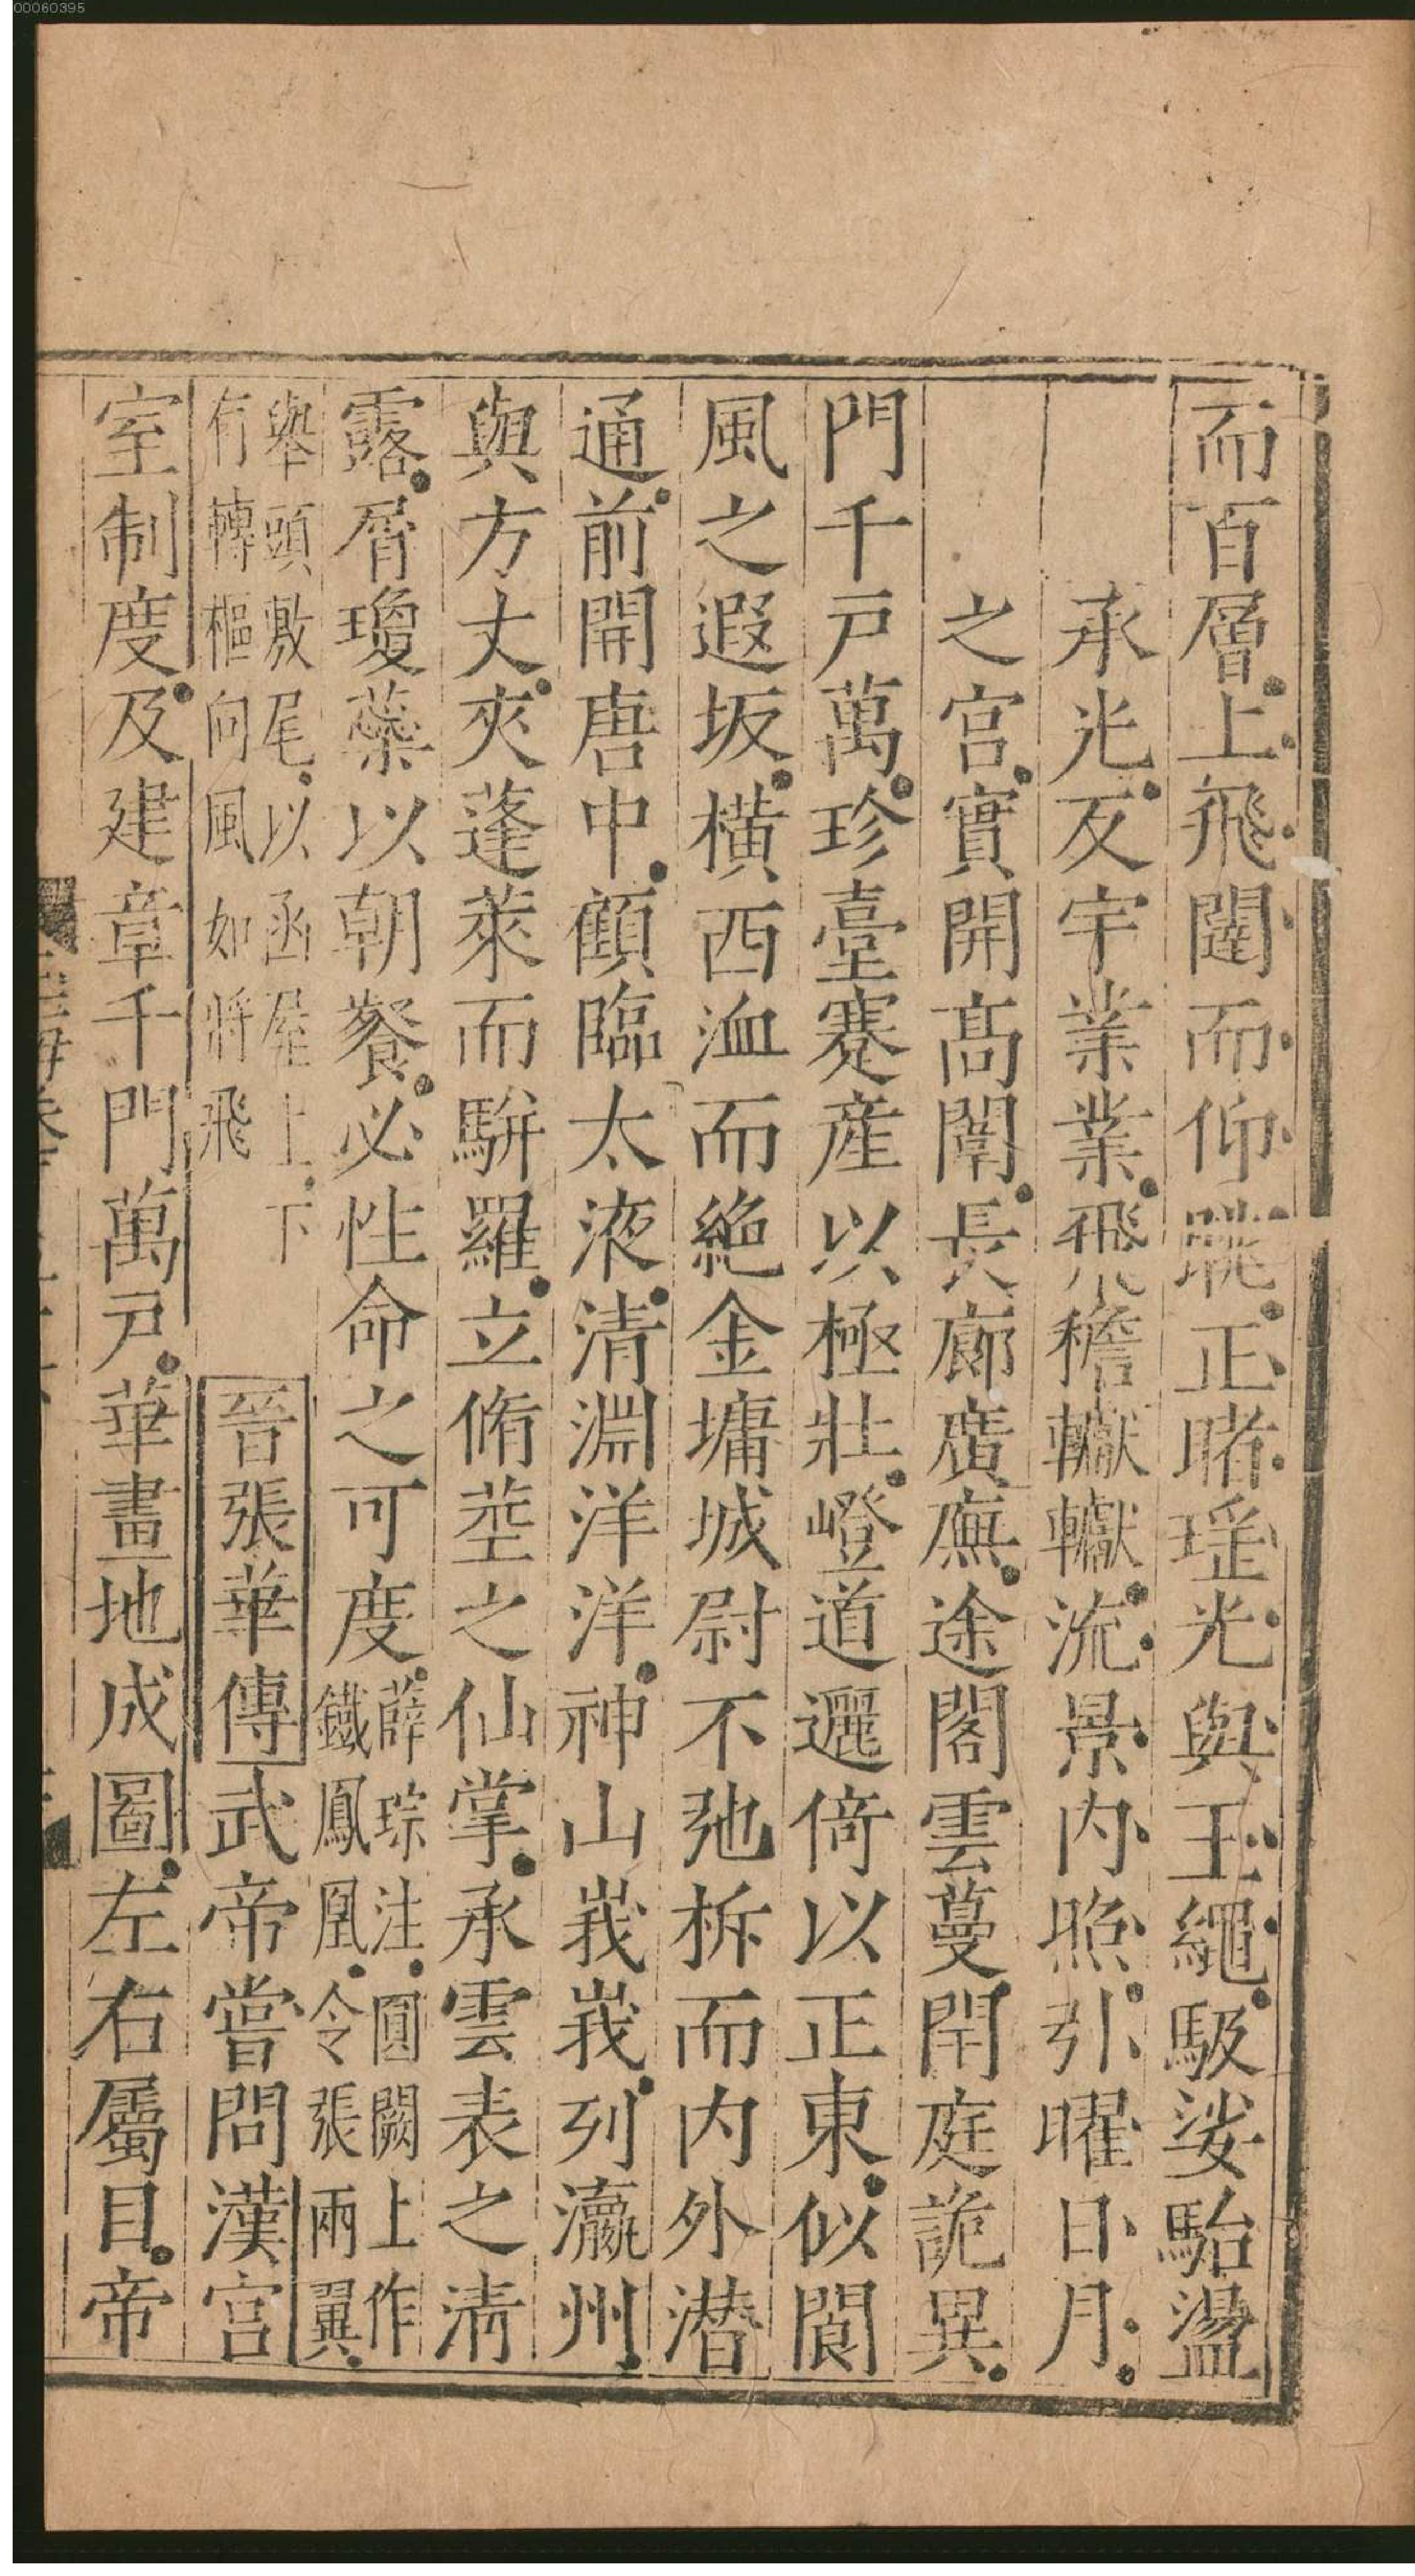 00060395
而百層上飛闥而仰眺正睹瑤光與玉繩馺娑駘盪
承光反宇業業飛檐轥轥流景内照引曜日月
之宮實開高闈長廊廣廡途閣雲蔓閈庭詭異
門千戸萬珍臺蹇産以極壯嶝道邐倚以正東似閬
風之遐坂横西洫而絶金墉城尉不弛柝而内外潜
通前開唐中顧臨太液清淵洋洋神山峩峩列瀛州
與方丈夾蓬萊而駢羅立脩莖之仙掌承雲表之清
露屑瓊蘂以朝餐必性命之可度薛琮注圓闕上作
鐵鳳凰令張兩翼
舉頭敷尾以函屋上下
有轉樞向風如將飛
晉張華傳武帝嘗問漢宮
室制度及建章千門萬戸華畫地成圖左右屬目帝